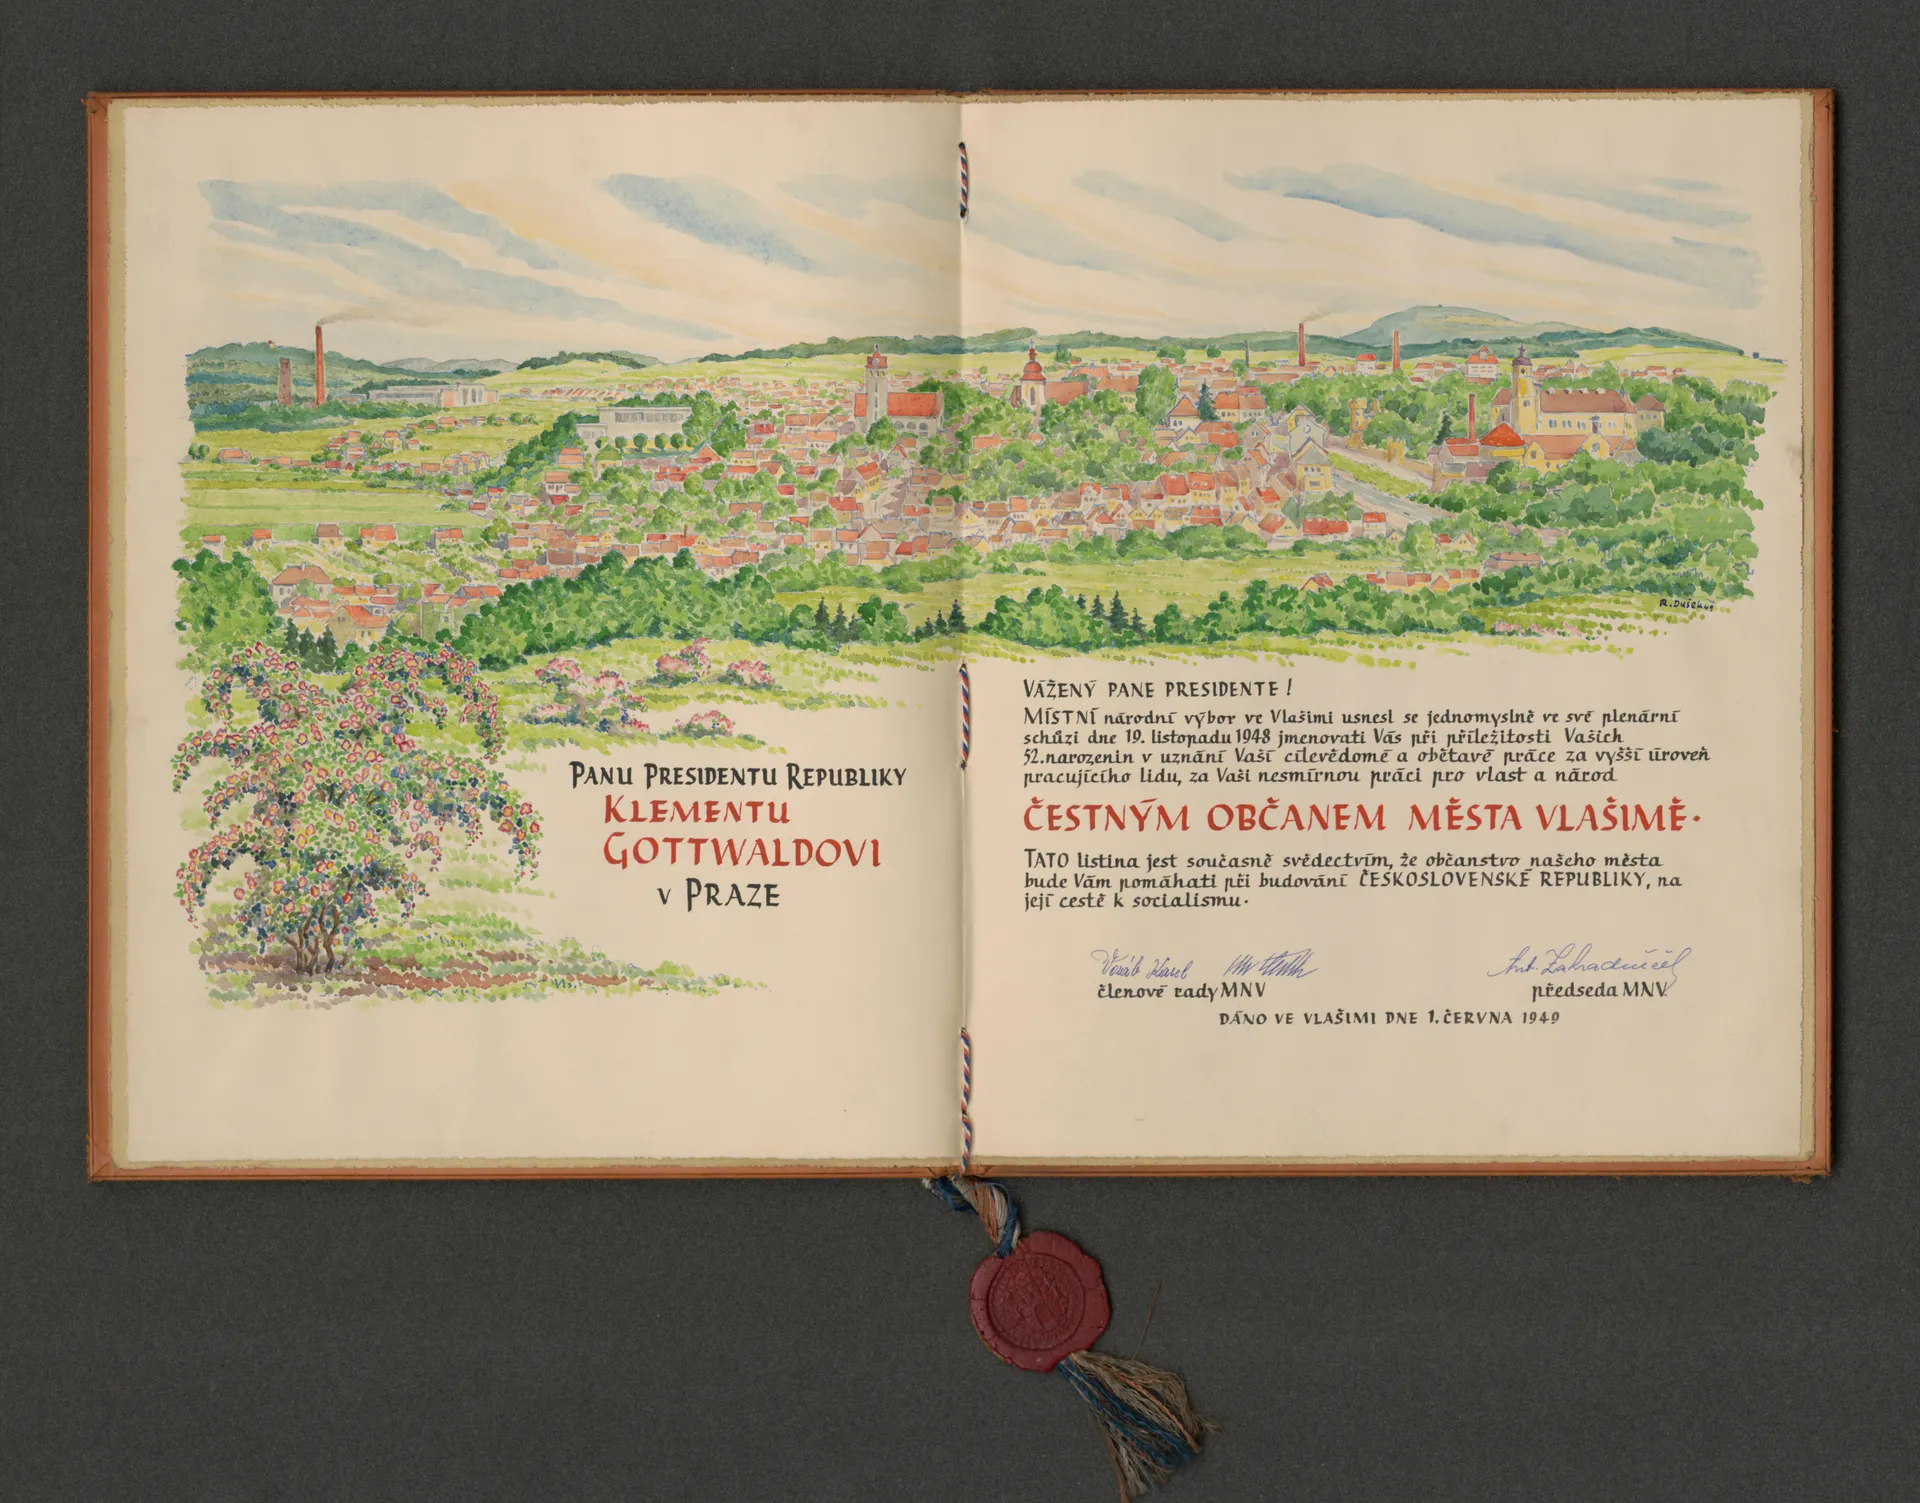 R. Dušek 49
PANU PRESIDENTU REPUBLIKY
KLEMENTU
GOTTWALDOVI
v PRAZE
VÁŽENÝ PANE PRESIDENTE!
MÍSTNÍ národní výbor ve Vlašimi usnesl se jednomyslně ve své plenární
schůzi dne 19. listopadu 1948 jmenovati Vás při příležitosti Vašich
52. narozenin v uznání Vaší cílevědomé a obětavé práce za vyšší úroveň
pracujícího lidu, za Vaši nesmírnou práci pro vlast a národ
ČESTNÝM OBČANEM MĚSTA VLAŠIMĚ.
TATO listina jest současně svědectvím, že občanstvo našeho města
bude Vám pomáhati při budování ČESKOSLOVENSKÉ REPUBLIKY, na
její cestě k socialismu.
Karel
Ant. Zahradníček
členové rady MNV
předseda MNV.
DÁNO VE VLAŠIMI DNE 1. ČERVNA 1949